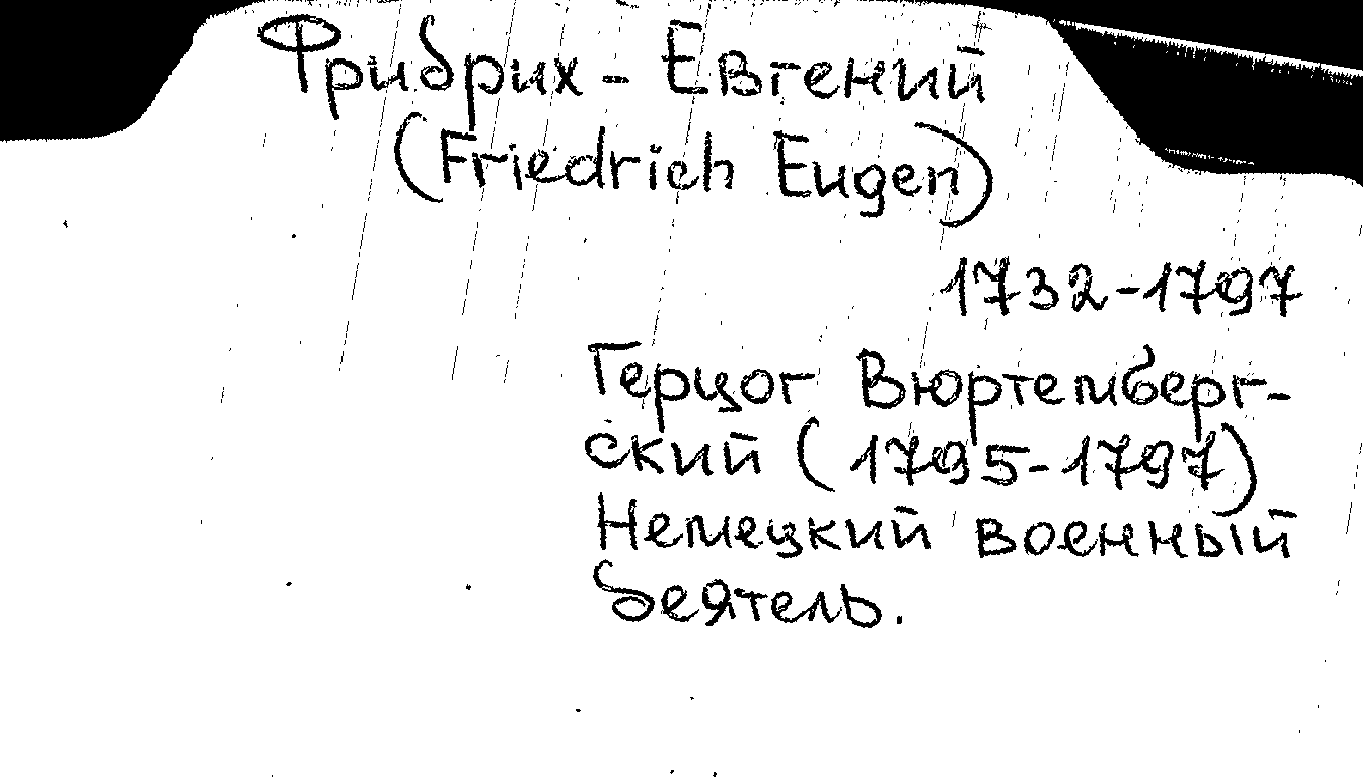 Фридрих - Евгений
(Friedrich Eugen)
1732-1797
Герцог Вюртемберг-
ский (1795-1797)
Немецкий военный
деятель.